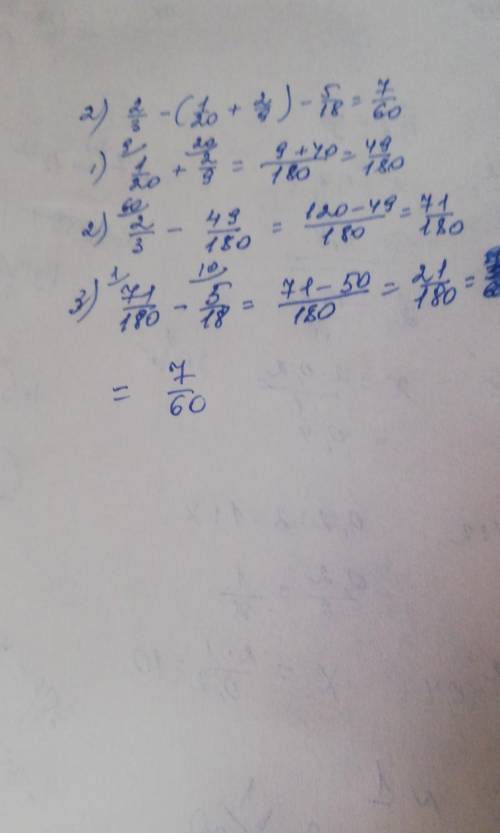 2) 2/3 - (1/20 + 2/9) - 5/18 = 7/60
1) 1/20 + 2/9 = 9+40/180 = 49/180
2) 2/3 - 49/180 = 120-49/180 = 71/180
3) 71/180 - 5/18 = 71-50/180 = 21/180 =
= 7/60